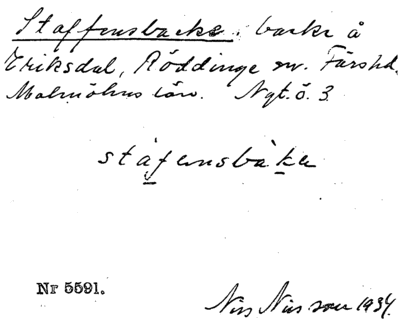 Staffensbacke, backe å
Eriksdal, Röddinge sn. Färs hd.
Malmöhus län. Ngt. ö. 3.
stafensbàken
Nr 5591.
Nils Nilsson 1934.